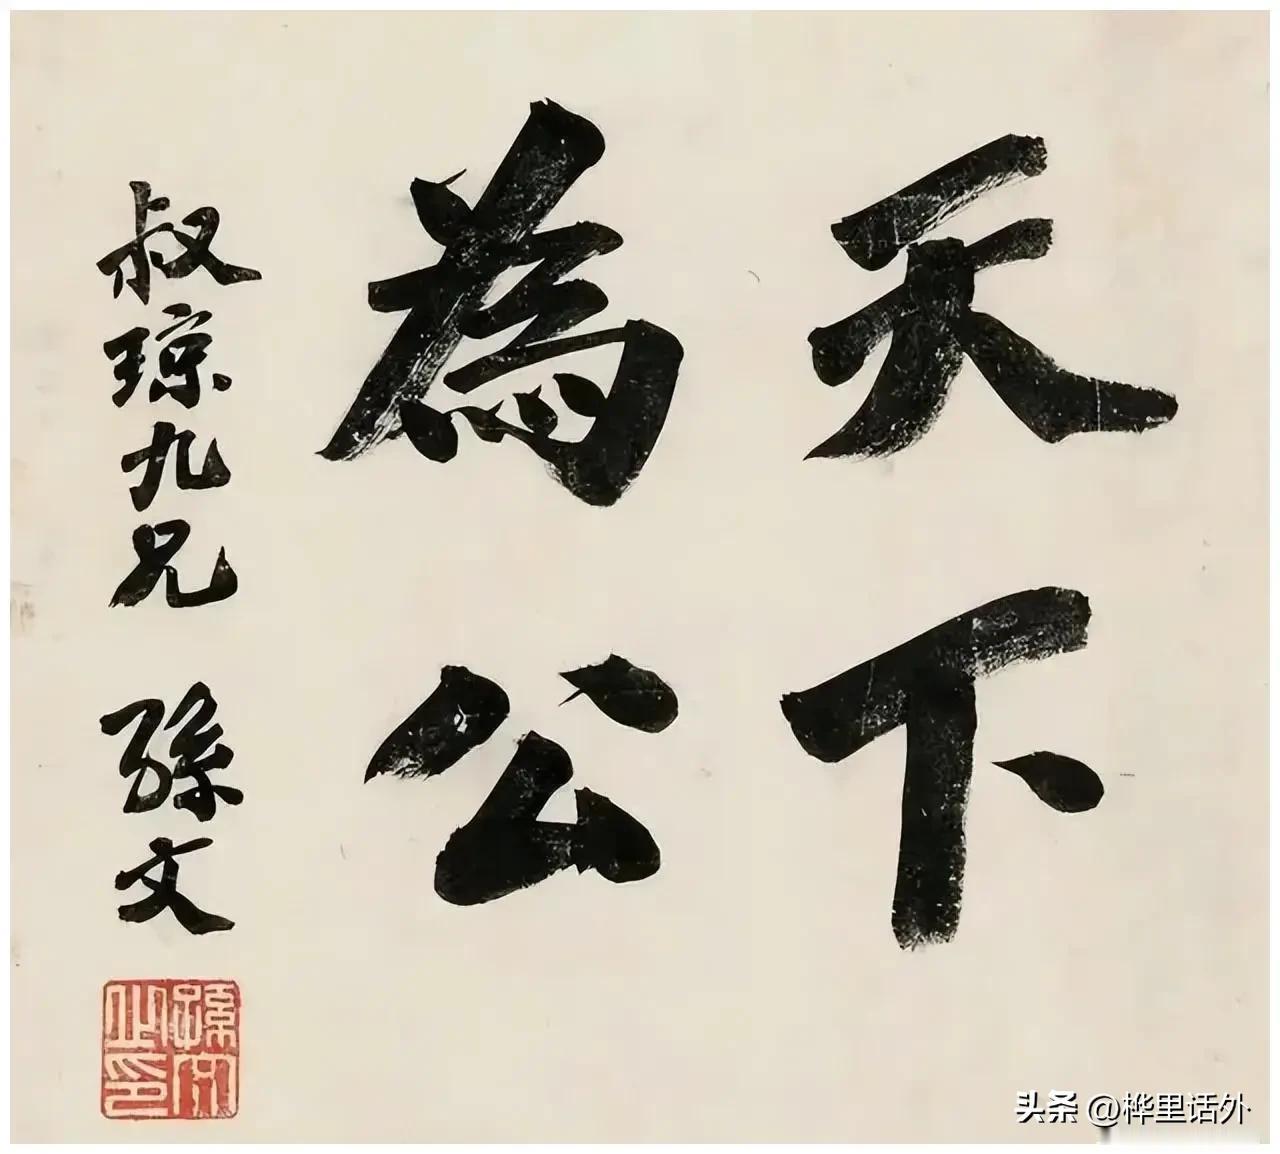 天下
為公
叔琼九兄 孫文
孫文之印
头条 @桦里话外